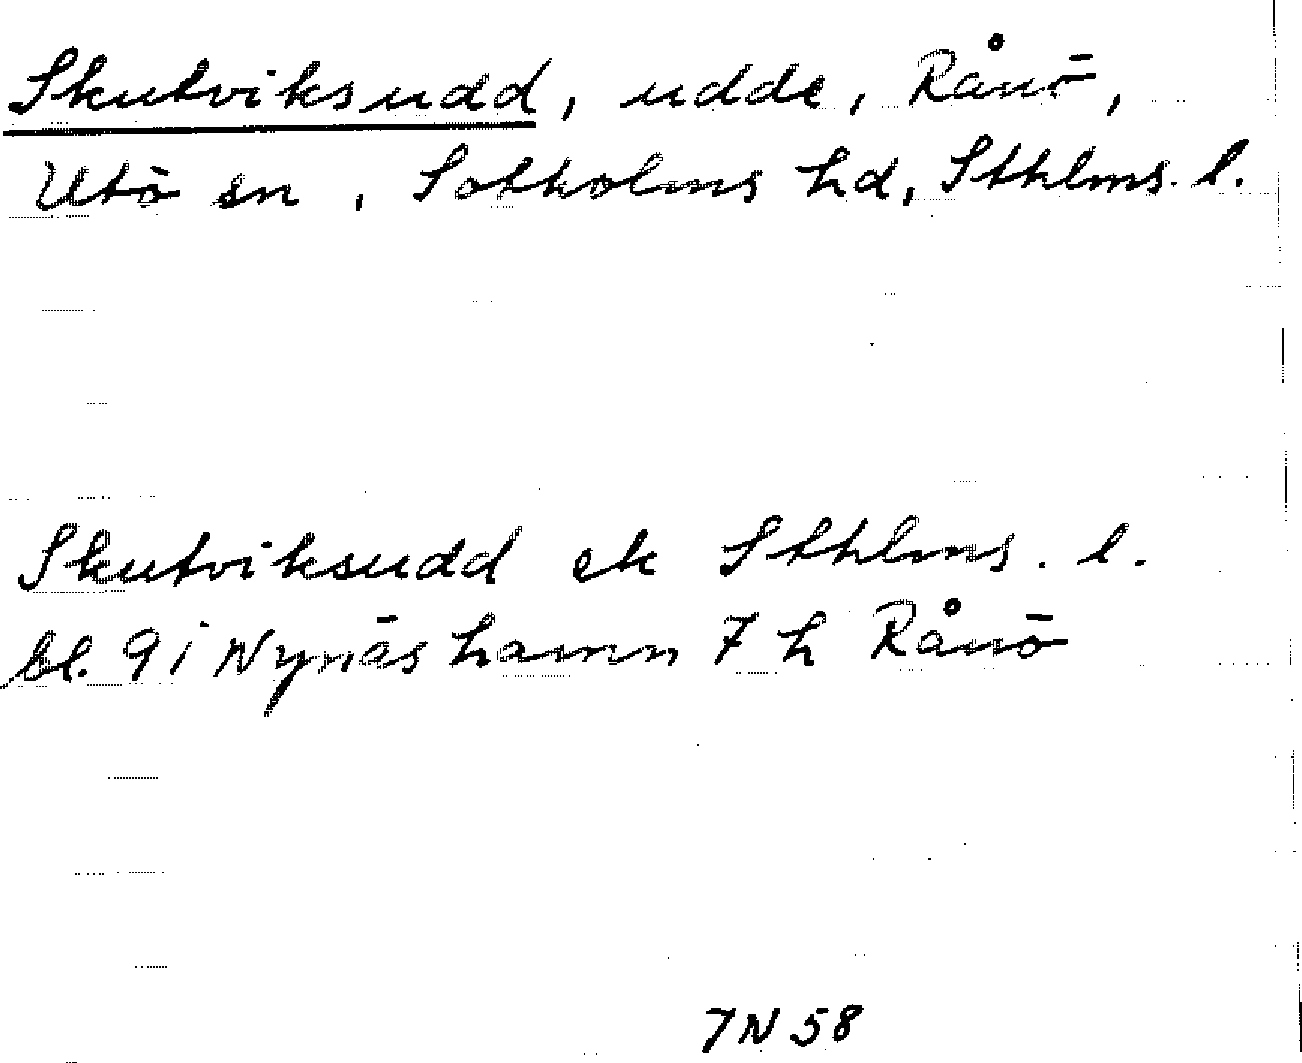 Skutviksudd, udde, Rånö,
Utö sn, Sotholms hd, Sthlms. l.
Skutviksudd ek Sthlms. l.
bl. 9i Nynäshamn 7 h Rånö
7N58